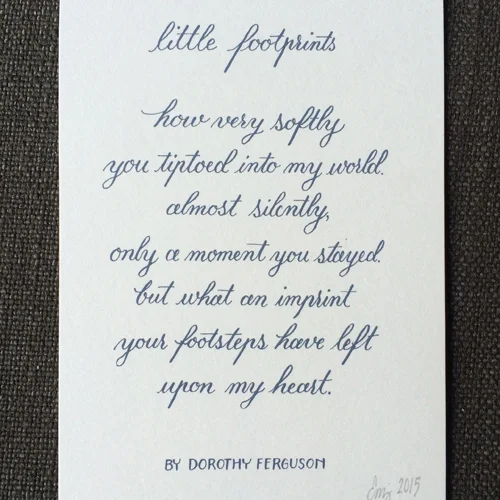 little footprints
how very softly
you tiptoed into my world.
almost silently,
only a moment you stayed.
but what an imprint
your footsteps have left
upon my heart.
BY DOROTHY FERGUSON
2015